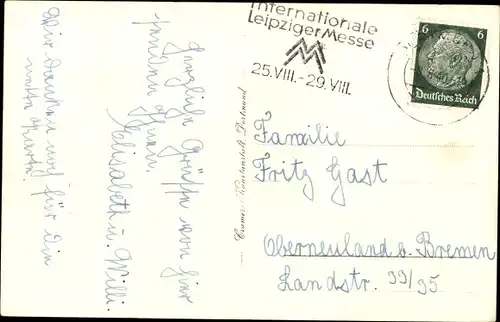 Herzliche Grüße von hier
senden Ihnen
Elisabeth u. Willi.
Wir danken noch für die
nette Karte.
Internationale
Leipziger Messe
25.VIII.-29.VIII.
6 6
Deutsches Reich
Cramers Kunstanstalt, Dortmund
Familie
Fritz Gast
Oberneuland b. Bremen
Landstr. 99/95